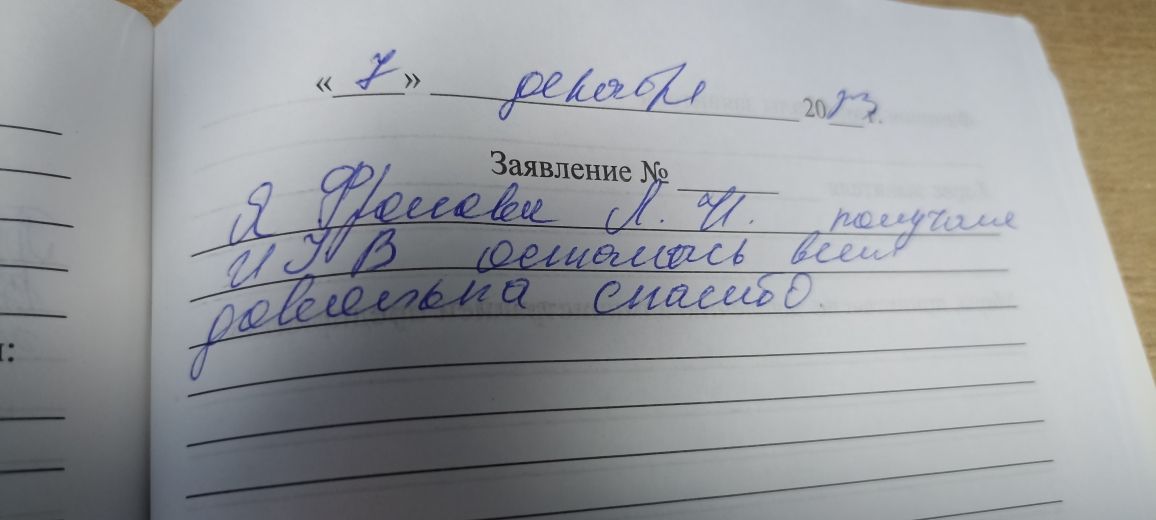 « 7 » декабря 2023 г.
Заявление № ____
Я Фролова Л. И. получила
ИЗ В осталась всем
довольна спасибо.
: